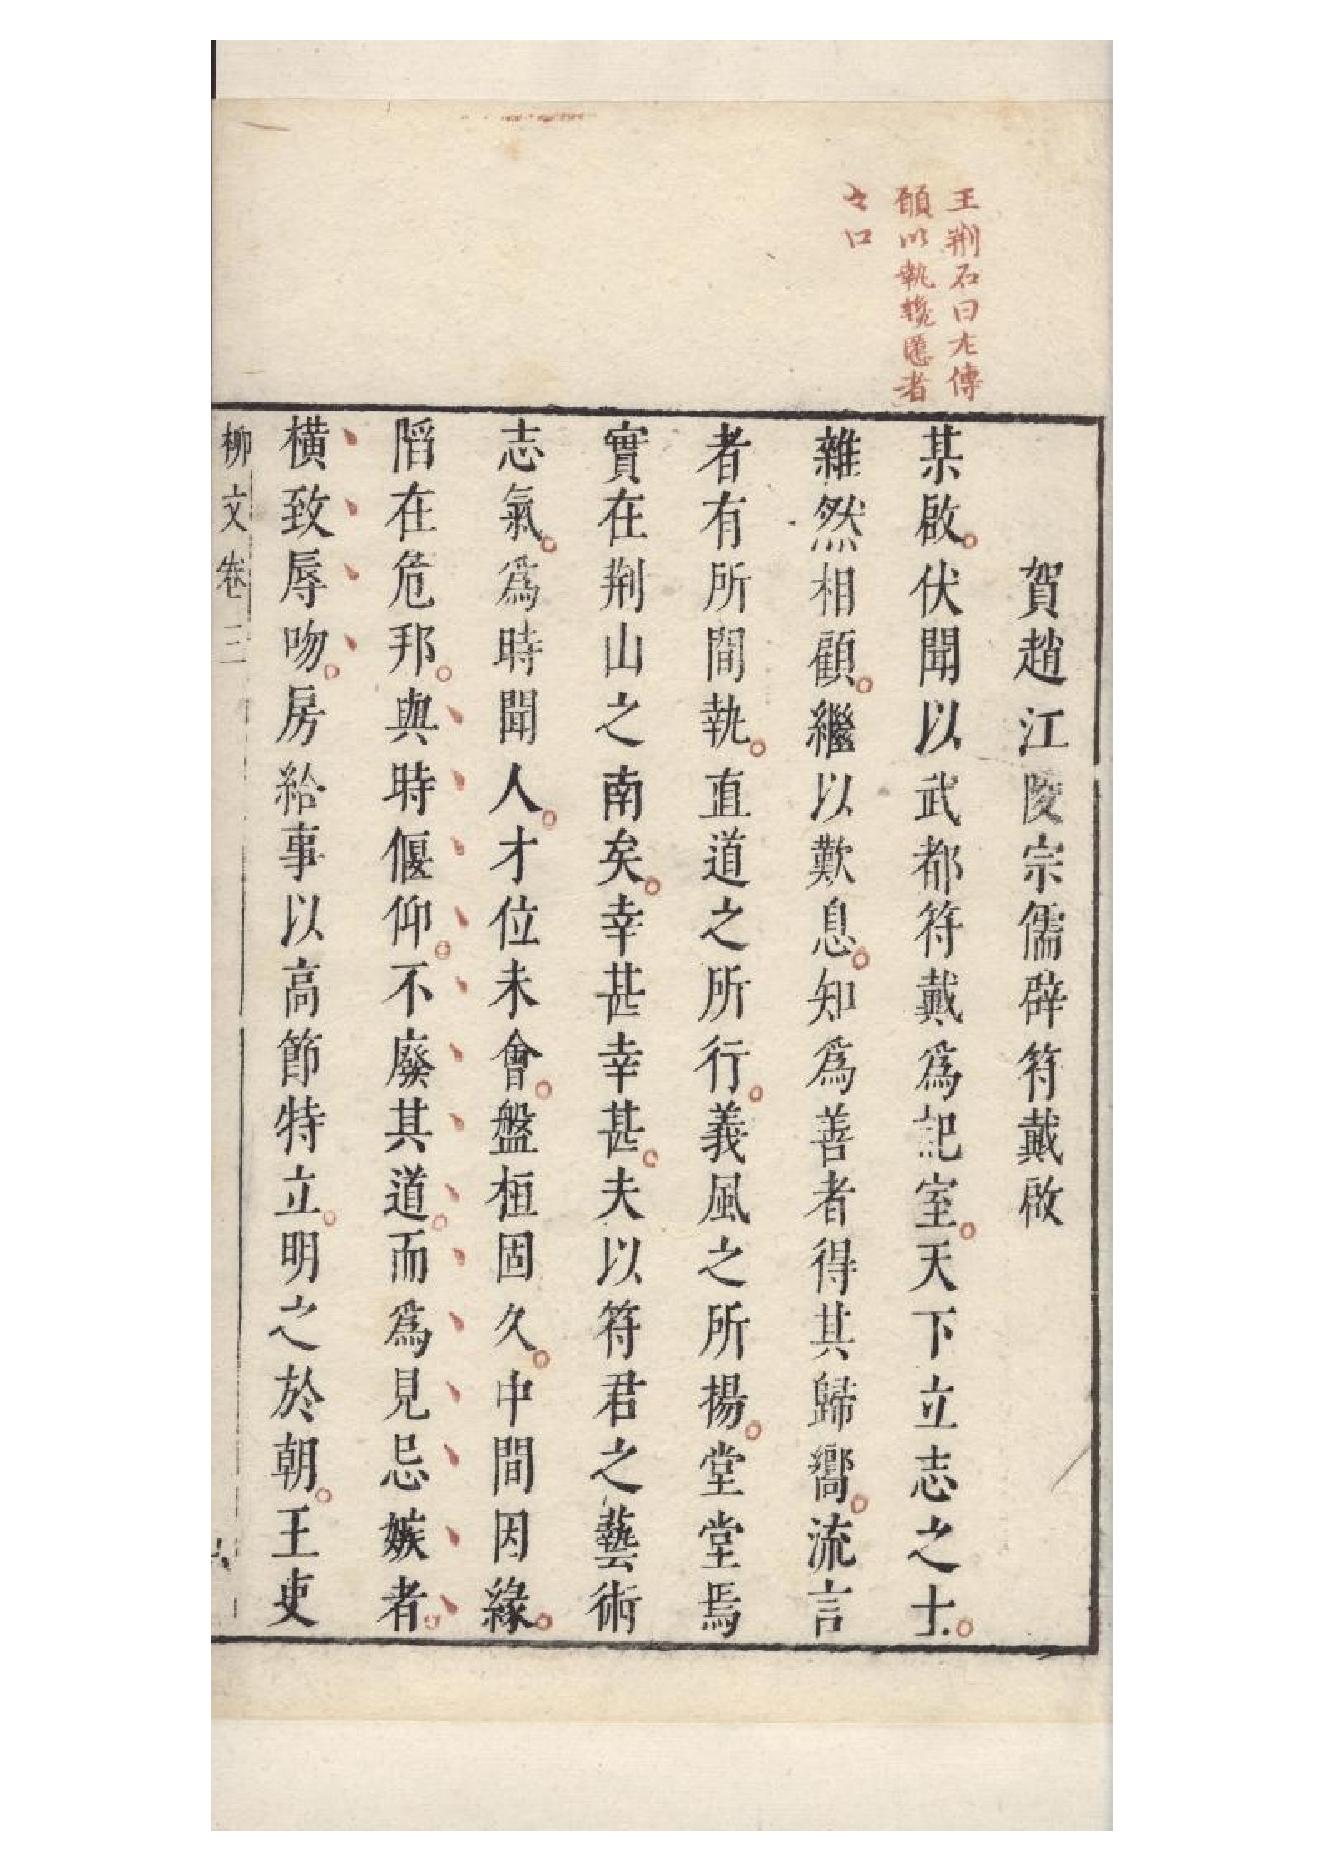 王荆石曰左傳
願以執讒慝者
之口
賀趙江陵宗儒辟符載啟
某啟伏聞以武都符載爲記室天下立志之士
雜然相顧繼以歎息知爲善者得其歸嚮流言
者有所間執直道之所行義風之所揚堂堂焉
實在荆山之南矣幸甚幸甚夫以符君之藝術
志氣爲時聞人才位未會盤桓固久中間因緣
陷在危邦與時偃仰不廢其道而爲見忌嫉者
橫致辱吻房給事以高節特立明之於朝王吏
柳文卷三